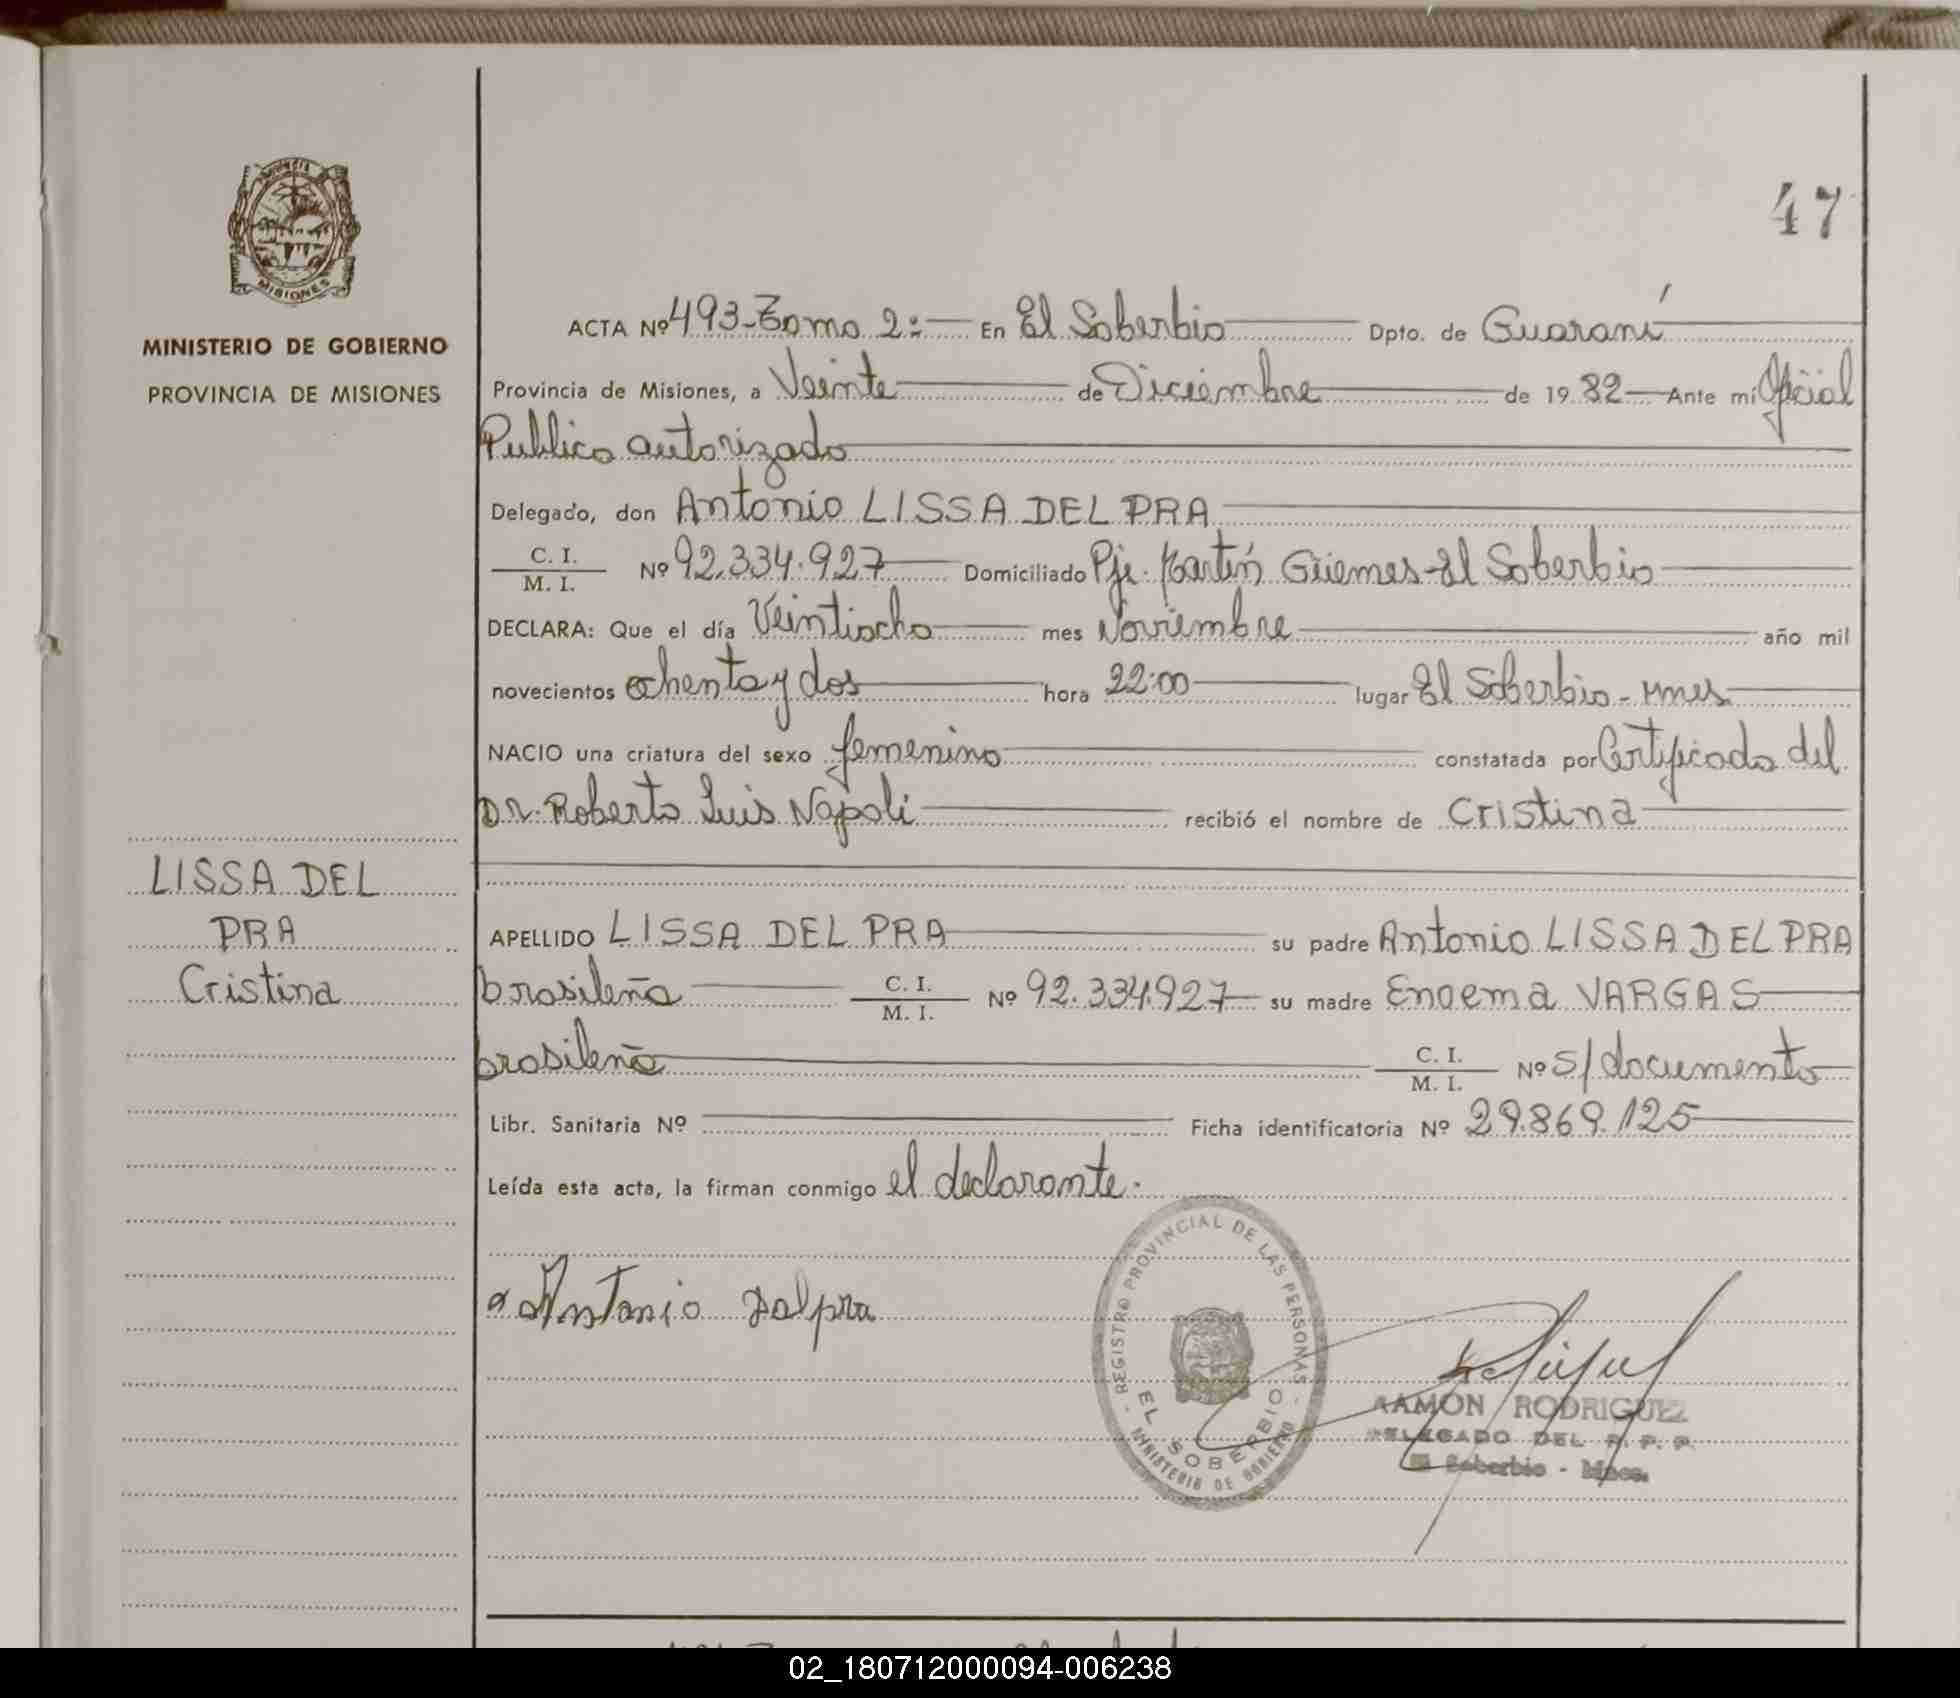 47
MINISTERIO DE GOBIERNO
PROVINCIA DE MISIONES
MISIONES
LISSA DEL
PRA
Cristina
ACTA Nº 493-Tomo 2:- En El Soberbio Dpto. de Guaraní
Provincia de Misiones, a Veinte de Diciembre de 1982 Ante mi Oficial
Publico autorizado
Delegado, don Antonio LISSA DEL PRA
C. I. / M. I. Nº 92.334.927 Domiciliado Pje. Martín Güemes-El Soberbio
DECLARA: Que el día Veintiocho mes Noviembre año mil
novecientos ochenta y dos hora 22:00 lugar El Soberbio-Mnes
NACIO una criatura del sexo femenino constatada por Certificado del
Dr. Roberto Luis Napoli recibió el nombre de Cristina
APELLIDO LISSA DEL PRA su padre Antonio LISSA DEL PRA
brasileña C. I. / M. I. Nº 92.334.927 su madre Enoema VARGAS
brasileña C. I. / M. I. Nº S/documento
Libr. Sanitaria Nº Ficha identificatoria Nº 29.869.125
Leída esta acta, la firman conmigo el declarante.
Antonio Dalpra
REGISTRO PROVINCIAL DE LAS PERSONAS
EL SOBERBIO
MINISTERIO DE GOBIERNO
RAMON RODRIGUEZ
DELEGADO DEL R. P. P.
El Soberbio - Mnes.
02_180712000094-006238